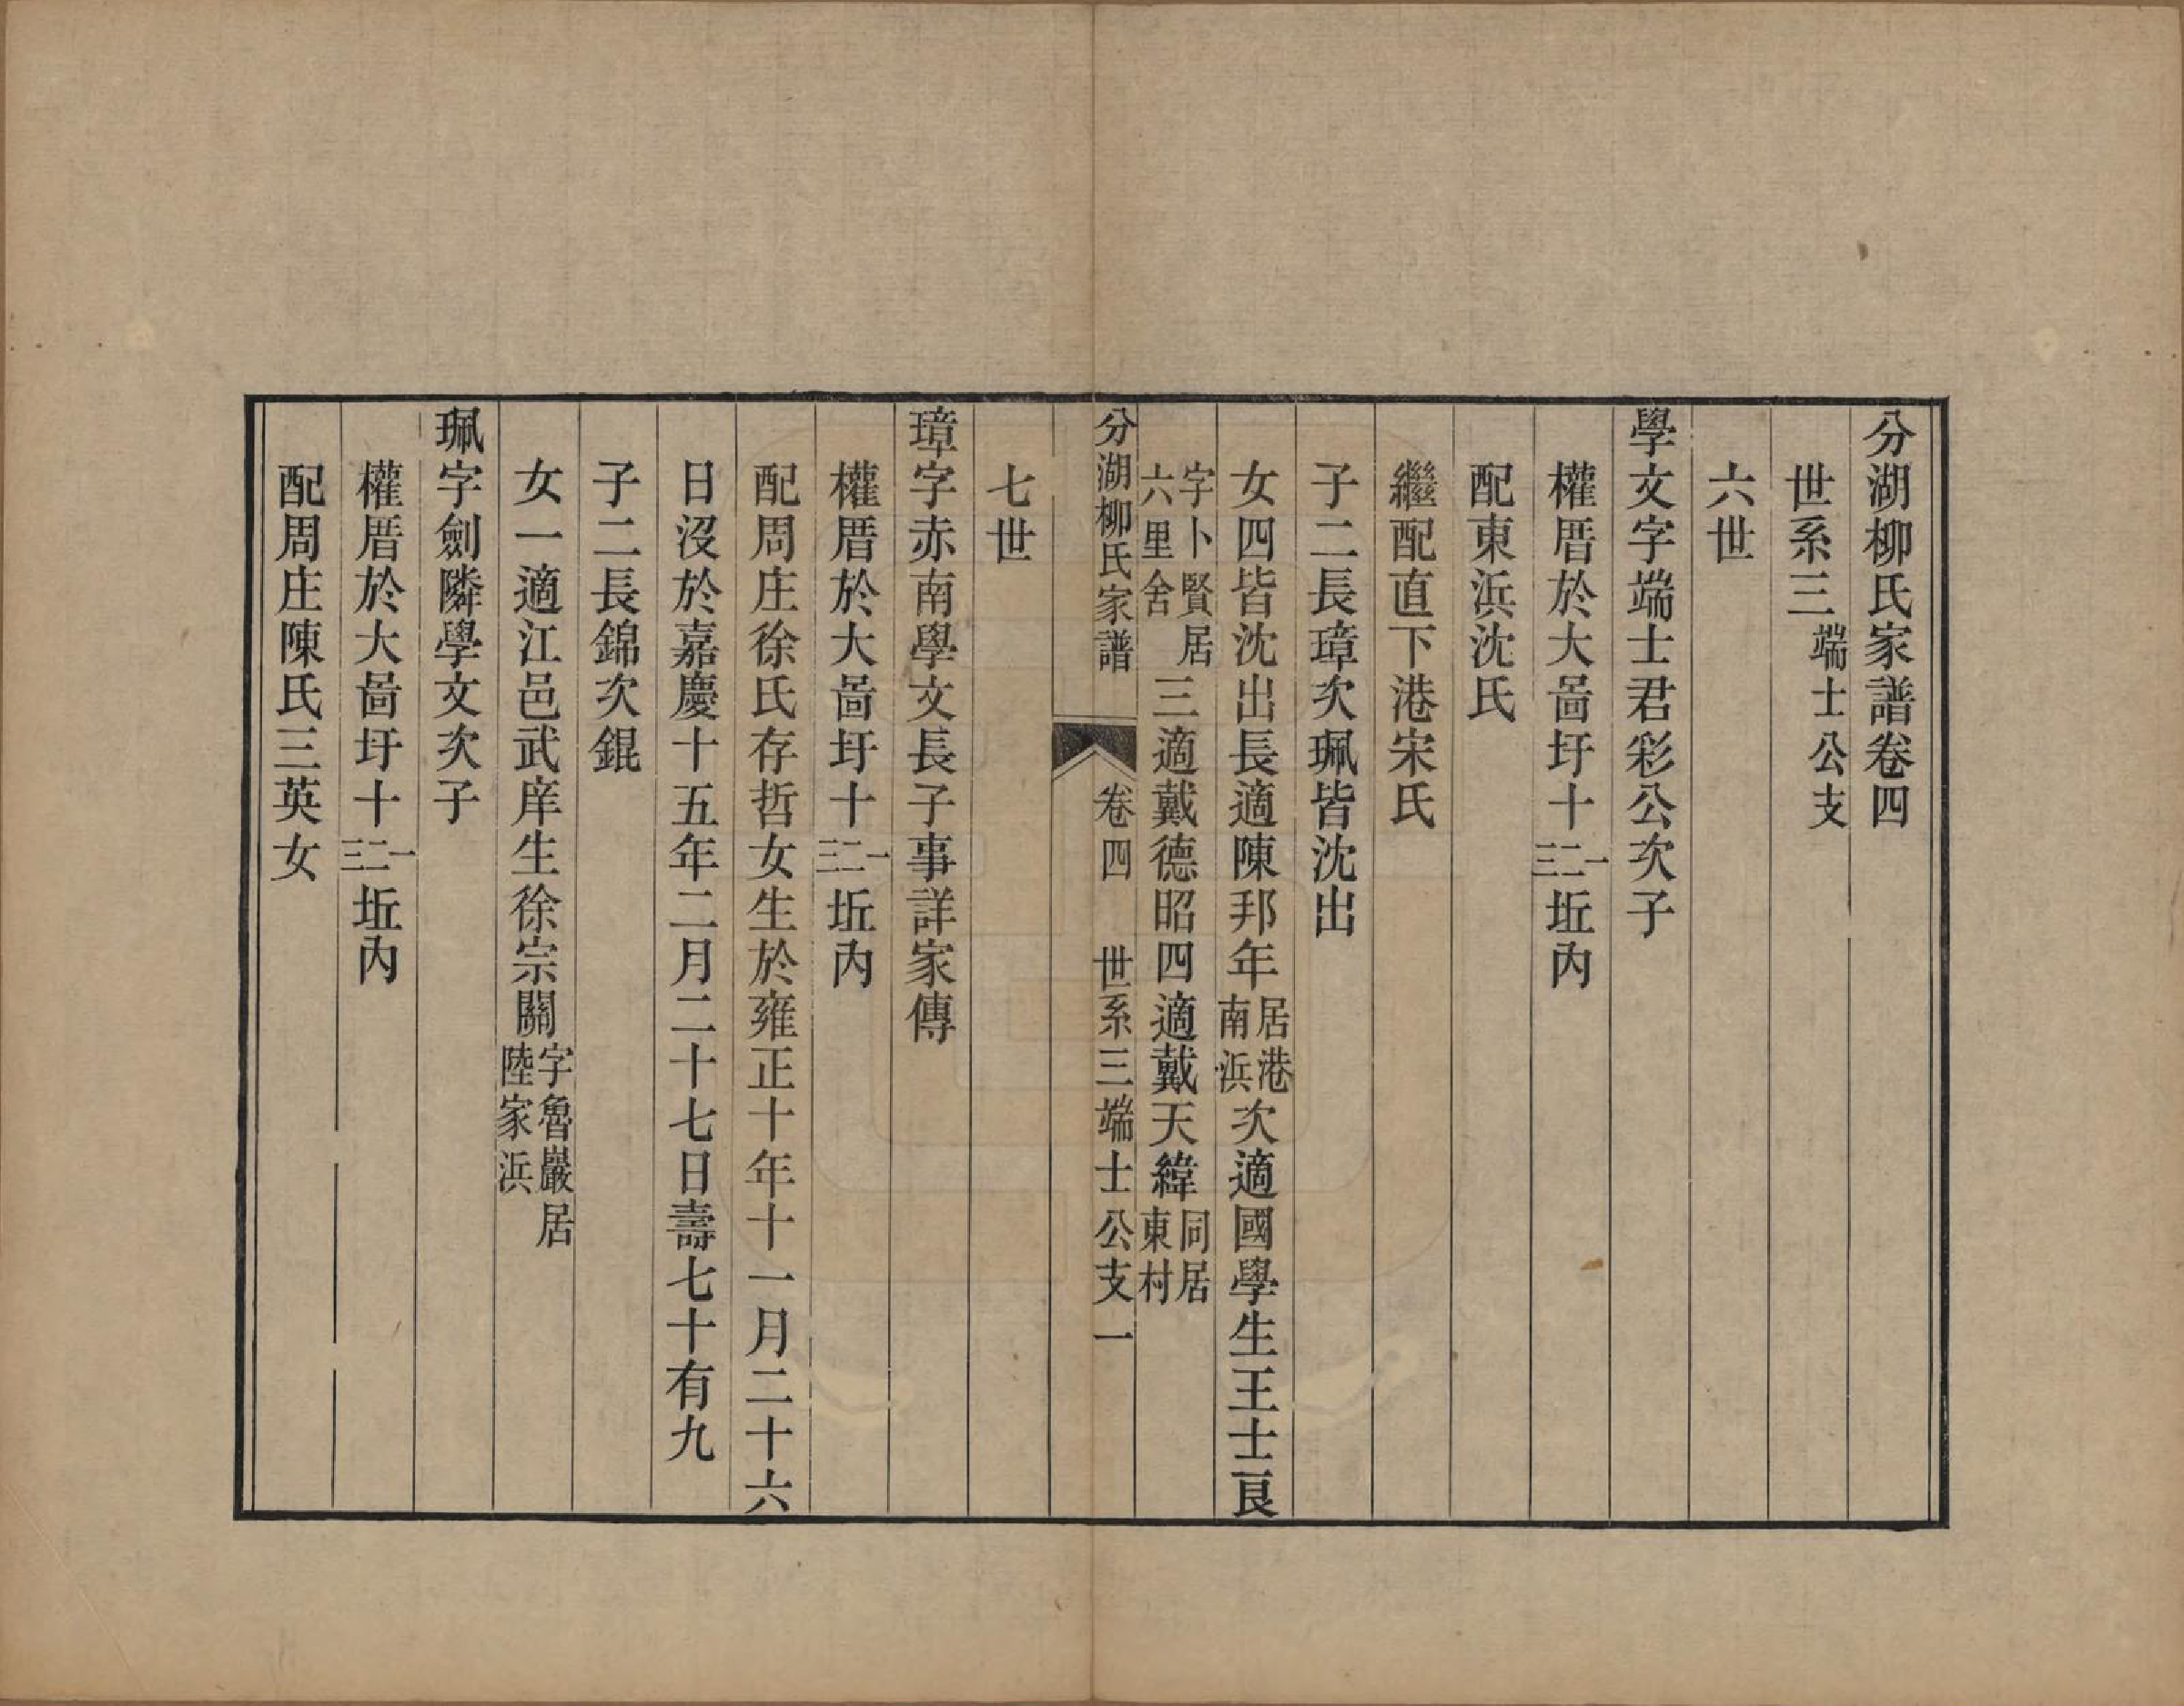 分湖柳氏家譜卷四
世系三端士公支
六世
學文字端士君彩公次子
權厝於大啚圩十一二三坵內
配東浜沈氏
繼配直下港宋氏
子二長璋次珮皆沈出
女四皆沈出長適陳邦年居港南浜次適國學生王士良
字卜賢居六里舍三適戴德昭四適戴天緯同居東村
分湖柳氏家譜 卷四 世系三端士公支一
七世
璋字赤南學文長子事詳家傳
權厝於大啚圩十一二三坵內
配周庄徐氏存哲女生於雍正十年十一月二十六
日沒於嘉慶十五年二月二十七日壽七十有九
子二長錦次錕
女一適江邑武庠生徐宗關字魯巖居陸家浜
珮字劍隣學文次子
權厝於大啚圩十一二三坵內
配周庄陳氏三英女